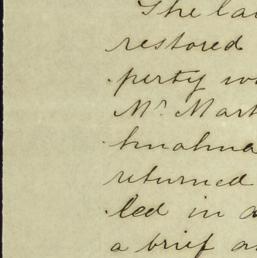 The la
restored
perty w
Mr. Mart
returned
led in a
a brief a